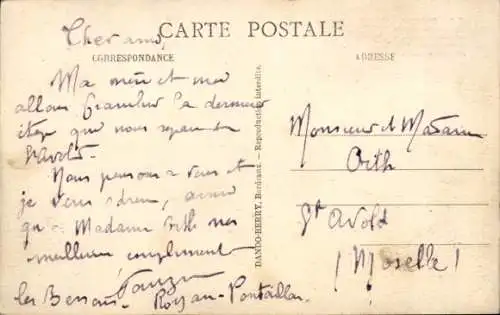 CARTE POSTALE
CORRESPONDANCE
ADRESSE
Cher ami,
Ma mère et moi
allons franchir la dernière
étape que nous sépare de
St Avold.
Nous pensons à vous et
je vous adresse, ainsi
qu'à Madame Orth nos
meilleurs compliments
Les Bessons Royan-Pontaillac
DANDO-BERRY, Bordeaux. - Reproduction interdite.
Monsieur et Madame
Orth
St Avold
(Moselle)